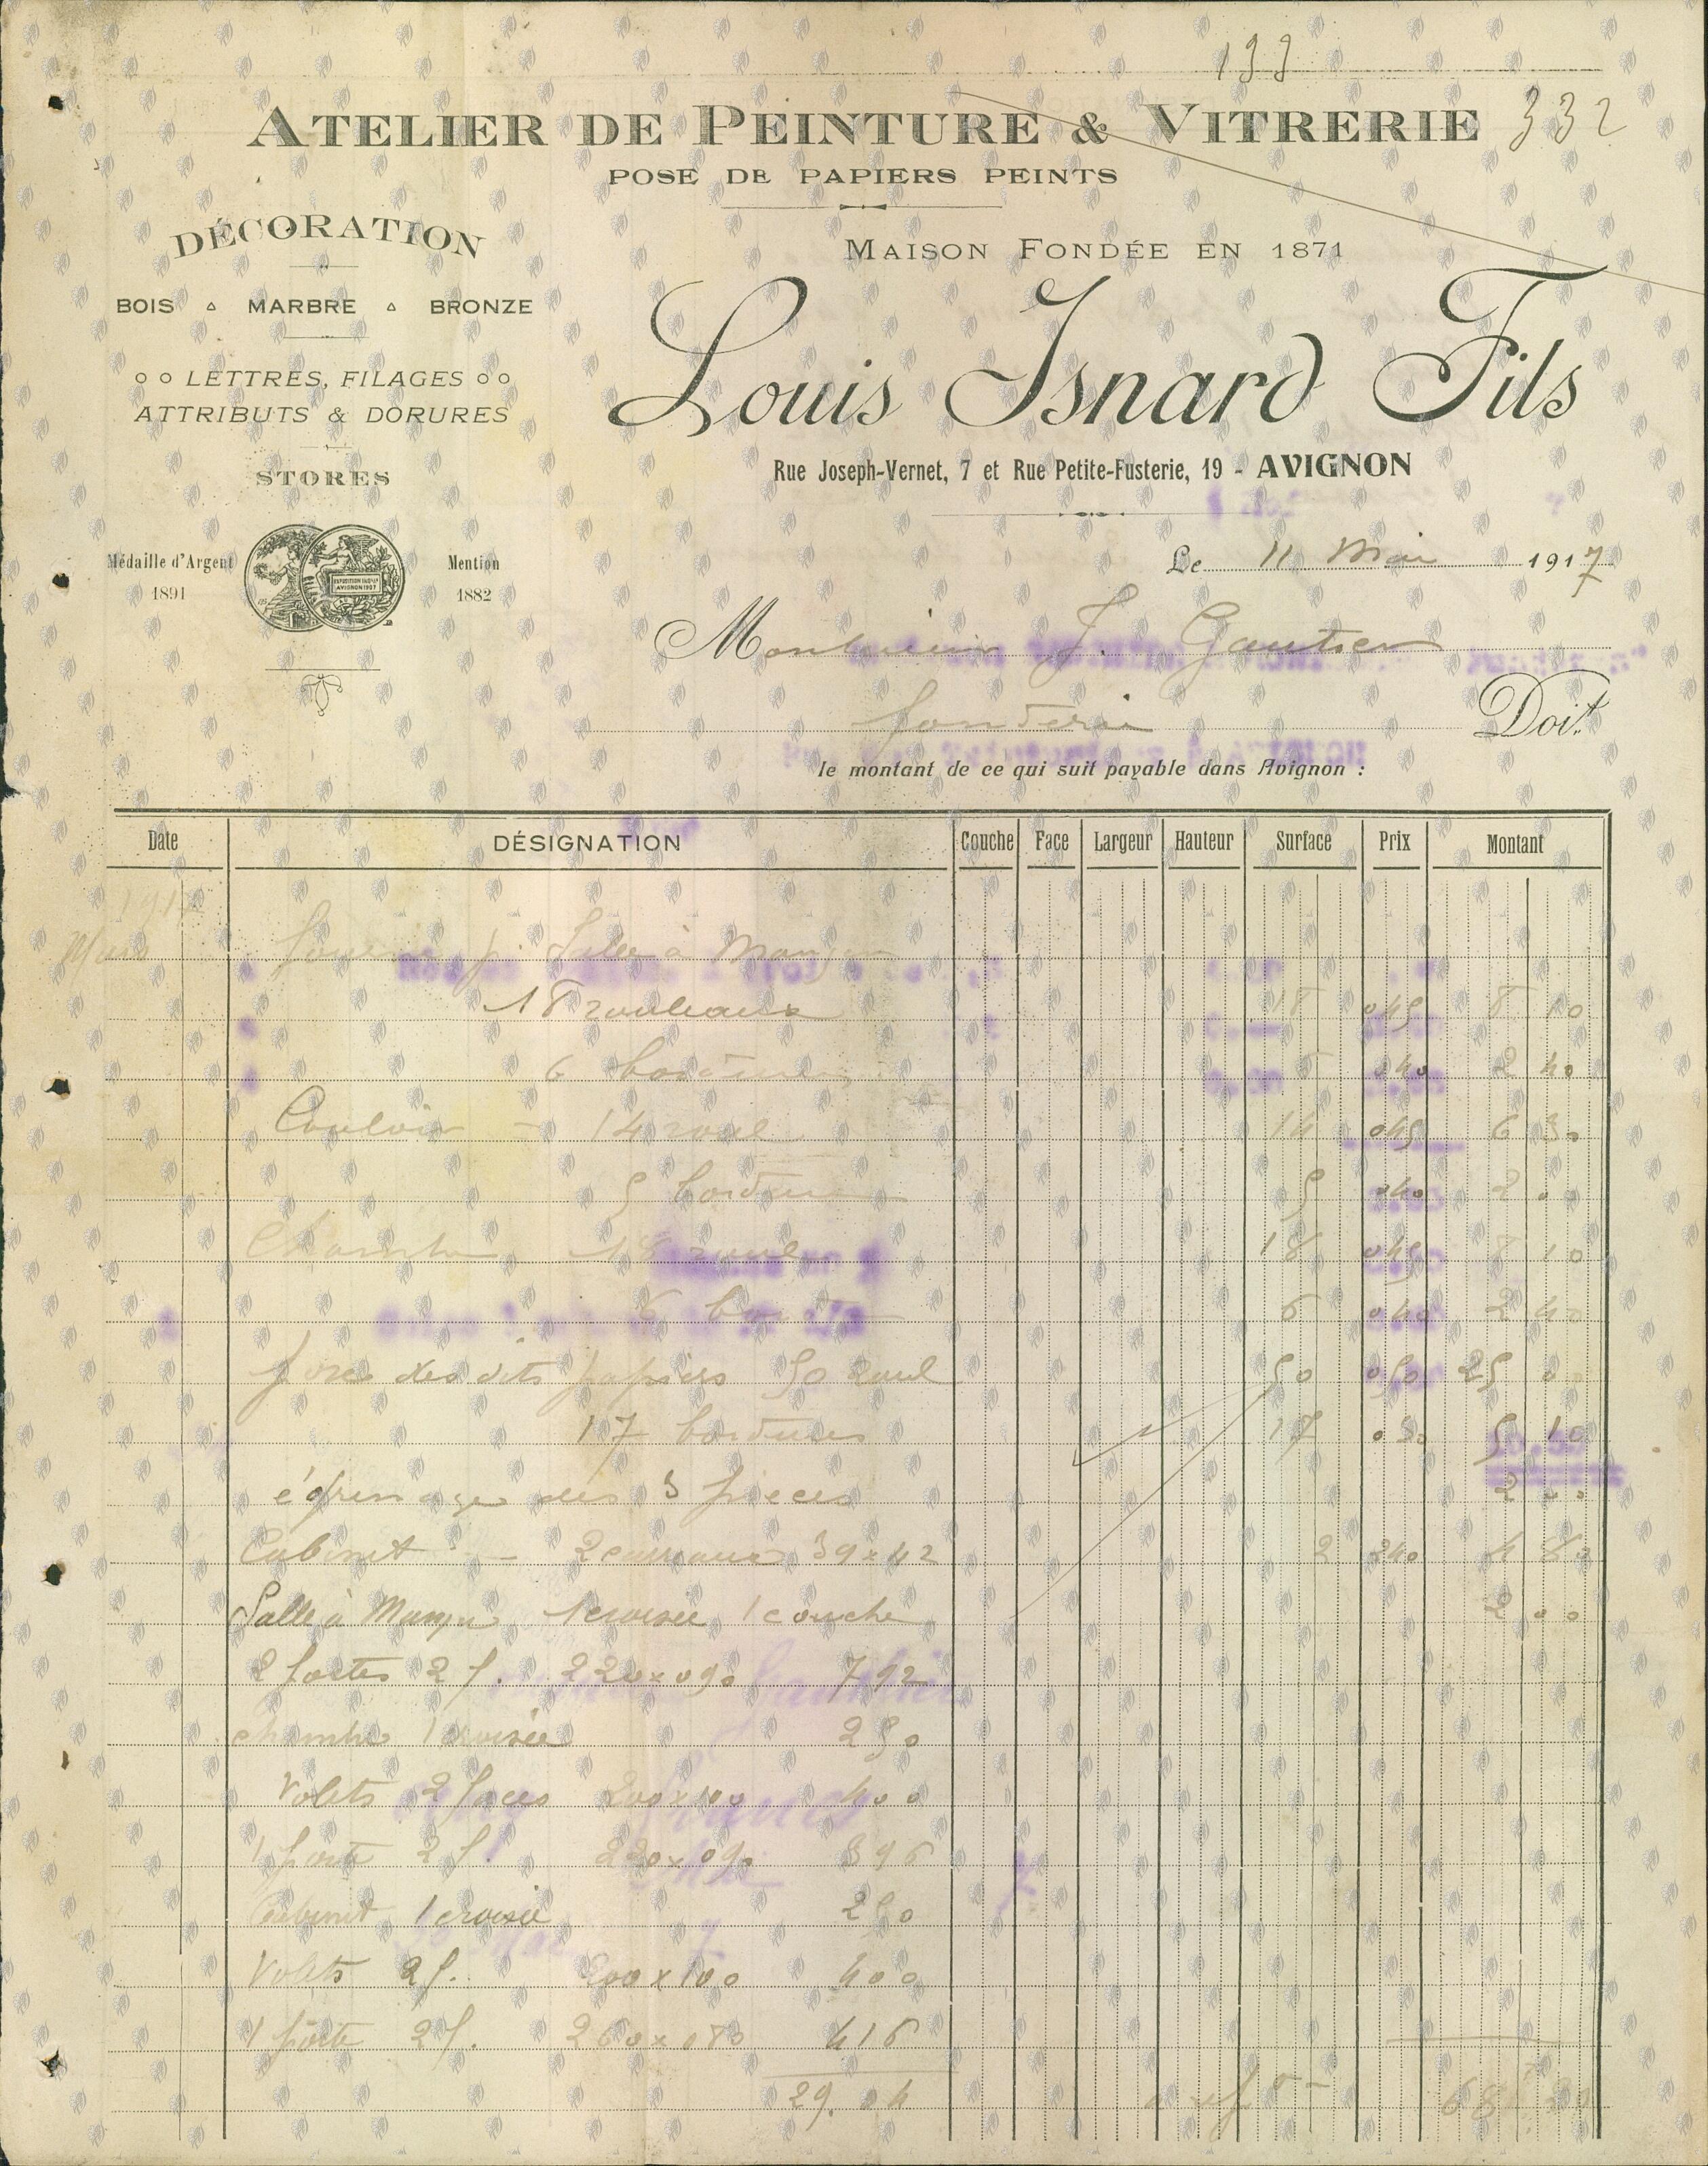 133
ATELIER DE PEINTURE & VITRERIE 332
POSE DE PAPIERS PEINTS
DÉCORATION
BOIS MARBRE BRONZE
LETTRES, FILAGES
ATTRIBUTS & DORURES
STORES
Médaille d'Argent
1891
EXPOSITION INDle
AVIGNON 1907
Mention
1882
MAISON FONDÉE EN 1871
Louis Isnard Fils
Rue Joseph-Vernet, 7 et Rue Petite-Fusterie, 19 - AVIGNON
Le 11 Mai 1917
Monsieur J. Gautier
fonderie Doit
le montant de ce qui suit payable dans Avignon :
Date DÉSIGNATION Couche Face Largeur Hauteur Surface Prix Montant
1917
Mars p. Salle à Manger
18 rouleaux 18 045 8 10
6 bordures 6 040 2 40
Couloir - 14 roul 14 045 6 30
5 bordures 5 040 2 00
Chambre 18 roul 18 045 8 10
6 bord 6 040 2 40
pose des dits papiers 50 roul 50 050 25 00
17 bordures 17 030 5 10
égrenage des 3 pièces 2 00
Cabinet - 2 carreaux 39x42 2 240 4 80
Salle à Manger 1 croisée 1 couche 2 00
2 portes 2 f. 220x090 7 92
chambre 1 croisée 2 50
Volets 2 faces 200x100 4 00
1 porte 2 f. 220x090 3 96
Cabinet 1 croisée 2 50
Volets 2 f. 200x100 4 00
1 porte 2 f. 260x080 4 16
29.04 68 20